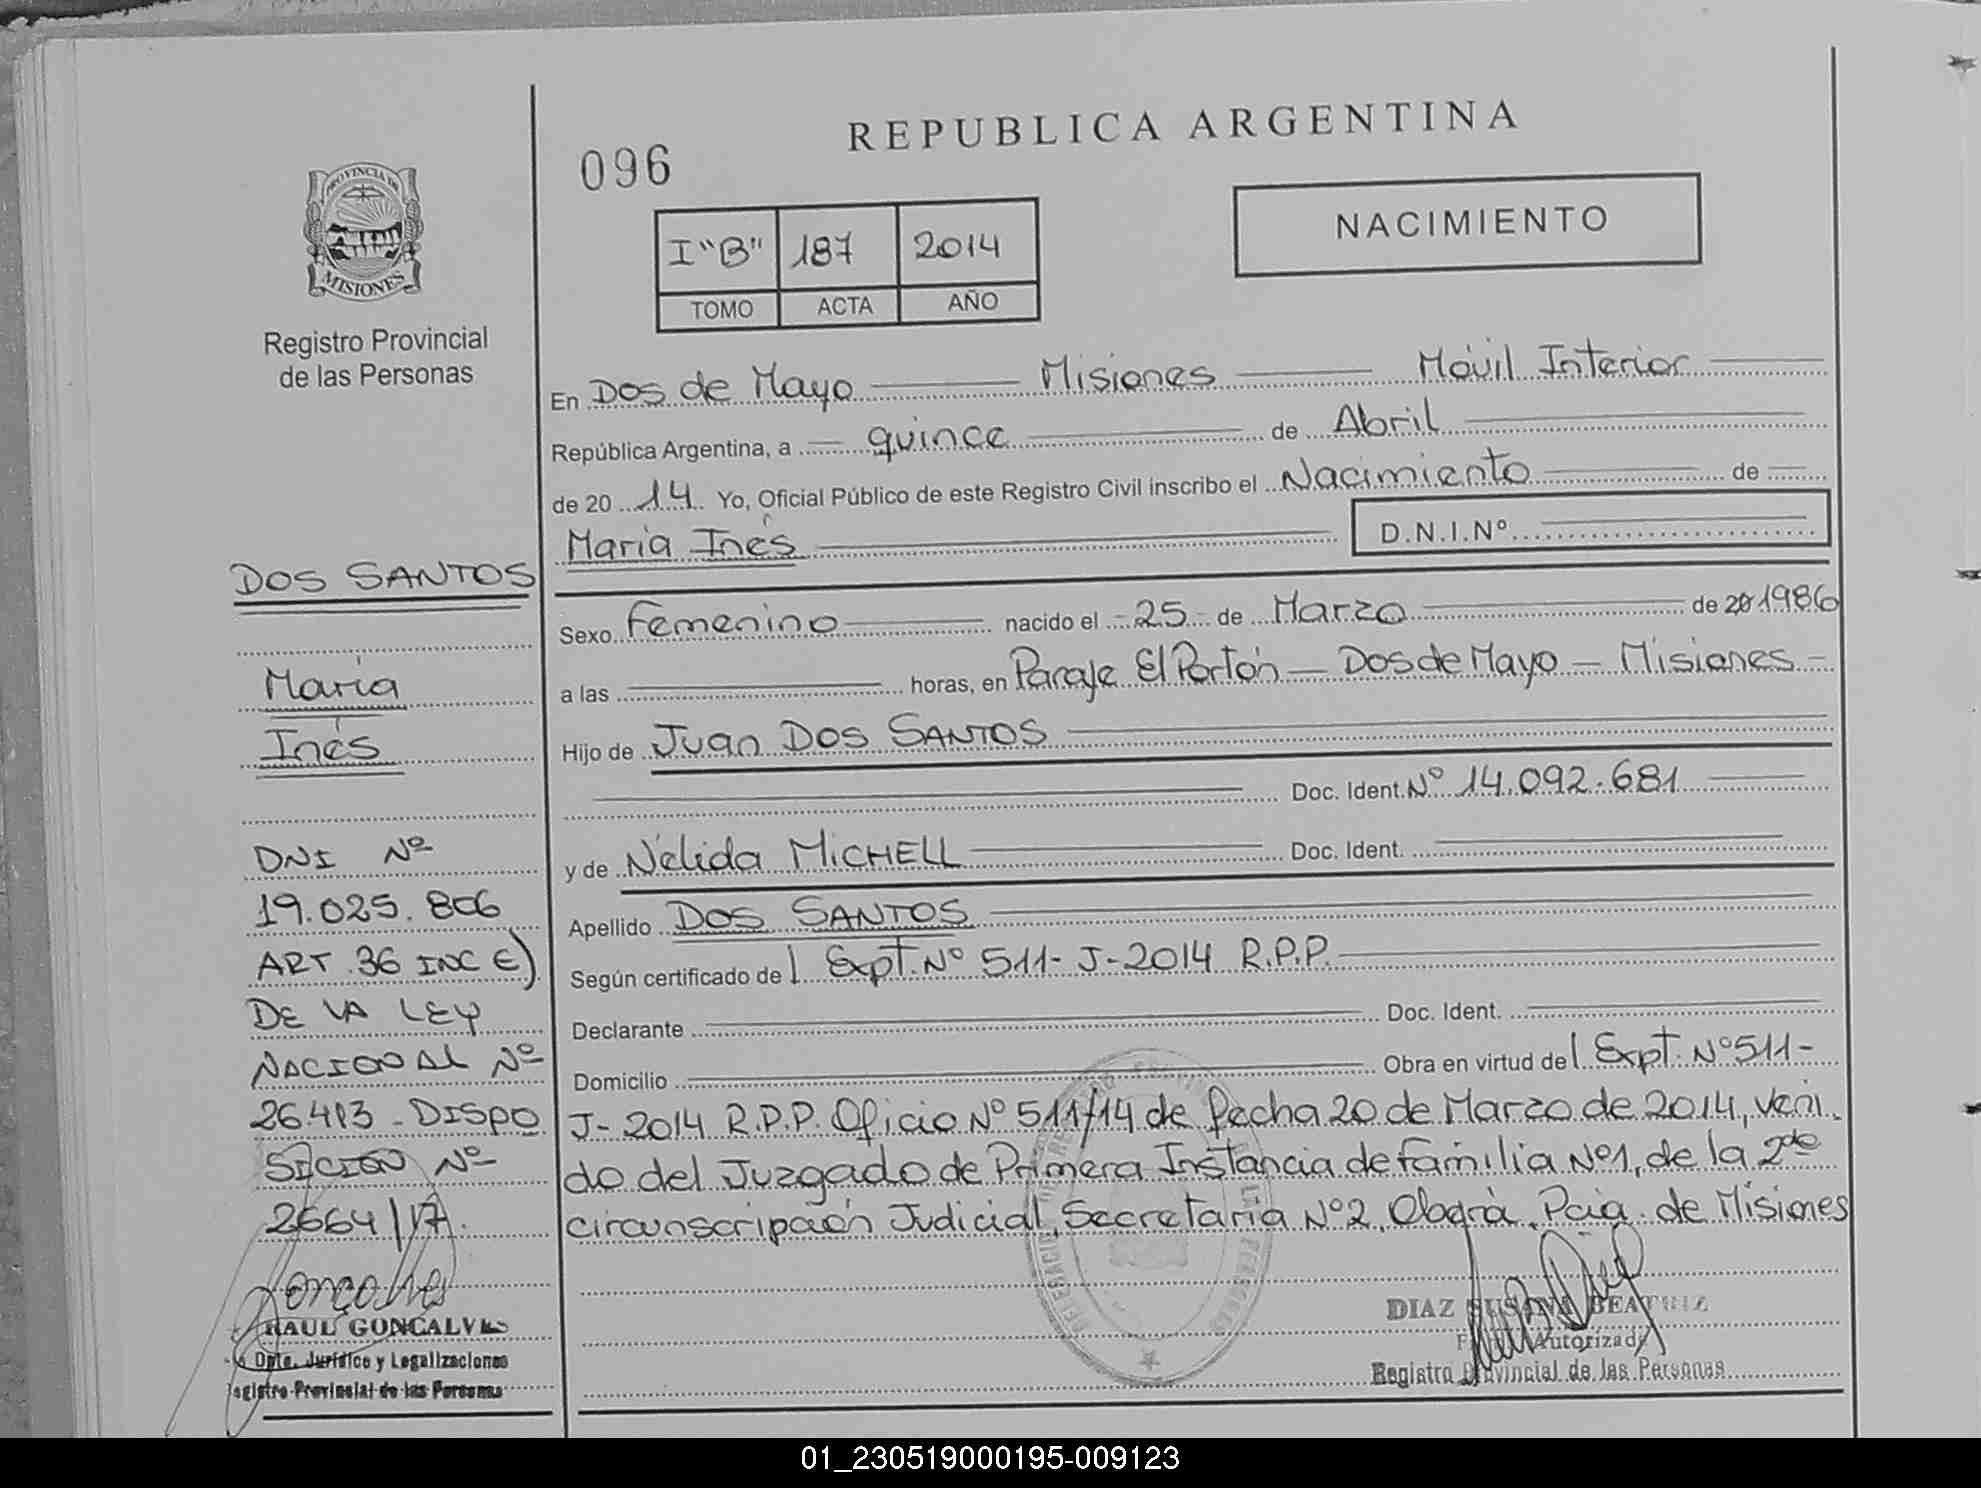 REPUBLICA ARGENTINA
096
NACIMIENTO
I "B" 187 2014
TOMO ACTA AÑO
PROVINCIA DE
MISIONES
Registro Provincial
de las Personas
En Dos de Mayo Misiones Móvil Interior
República Argentina, a quince de Abril
de 20 14 Yo, Oficial Público de este Registro Civil inscribo el Nacimiento de
María Inés D.N.I.Nº
Sexo Femenino nacido el 25 de Marzo de 20 1986
a las horas, en Paraje El Portón - Dos de Mayo - Misiones -
Hijo de Juan DOS SANTOS
Doc. Ident. Nº 14.092.681
y de Nélida MICHELL Doc. Ident.
Apellido DOS SANTOS
Según certificado de l Expt. Nº 511- J-2014 R.P.P.
Declarante Doc. Ident.
Domicilio Obra en virtud de l Expt. Nº 511-
J- 2014 R.P.P. Oficio Nº 511/14 de fecha 20 de Marzo de 2014, veni-
do del Juzgado de Primera Instancia de Familia Nº1, de la 2da
circunscripción Judicial, Secretaria Nº2, Oberá, Pcia. de Misiones
DIAZ SUSANA BEATRIZ
Autorizada
Registro Provincial de las Personas
DOS SANTOS
María
Inés
DNI Nº
19.025.806
ART 36 INC E)
DE LA LEY
NACIONAL Nº
26.413 - DISPO
SICION Nº
2664/17.
RAUL GONCALVES
Dpto. Jurídico y Legalizaciones
Registro Provincial de las Personas
01_230519000195-009123